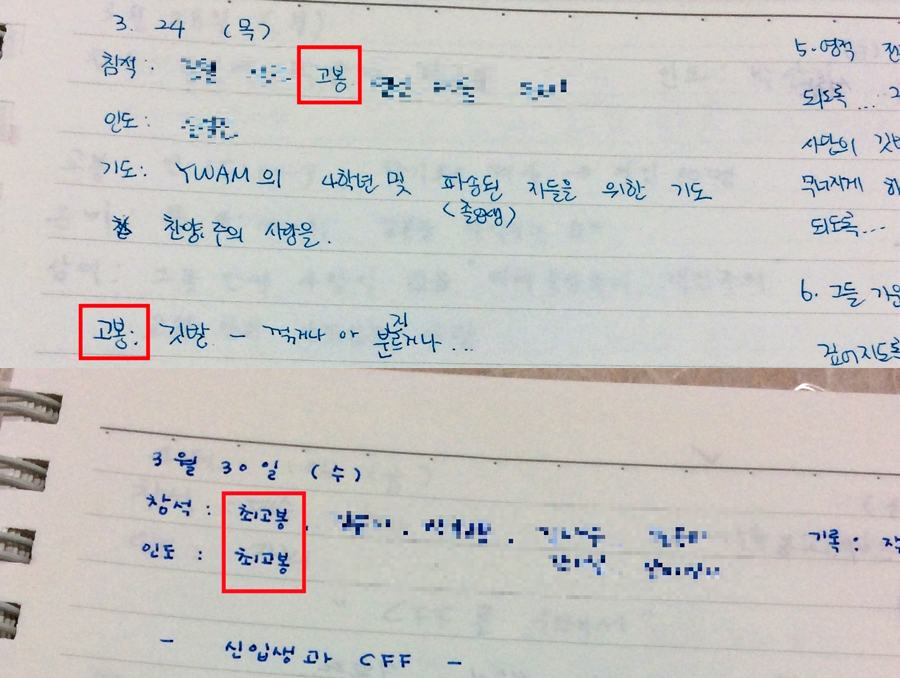 3. 24 (목)
침적: 고봉
인도:
기도: YWAM의 4학년 및 파송된 자들을 위한 기도
(졸업생)
찬양: 주의 사랑을.
고봉: 깃발 - 꺾거나 아
5. 영적
되도록...
사단의
무너지게
되도록...
6. 그들
깊어지도록
3월 30일 (수)
참석: 최고봉
인도: 최고봉
기록:
- 신입생과 CFF -